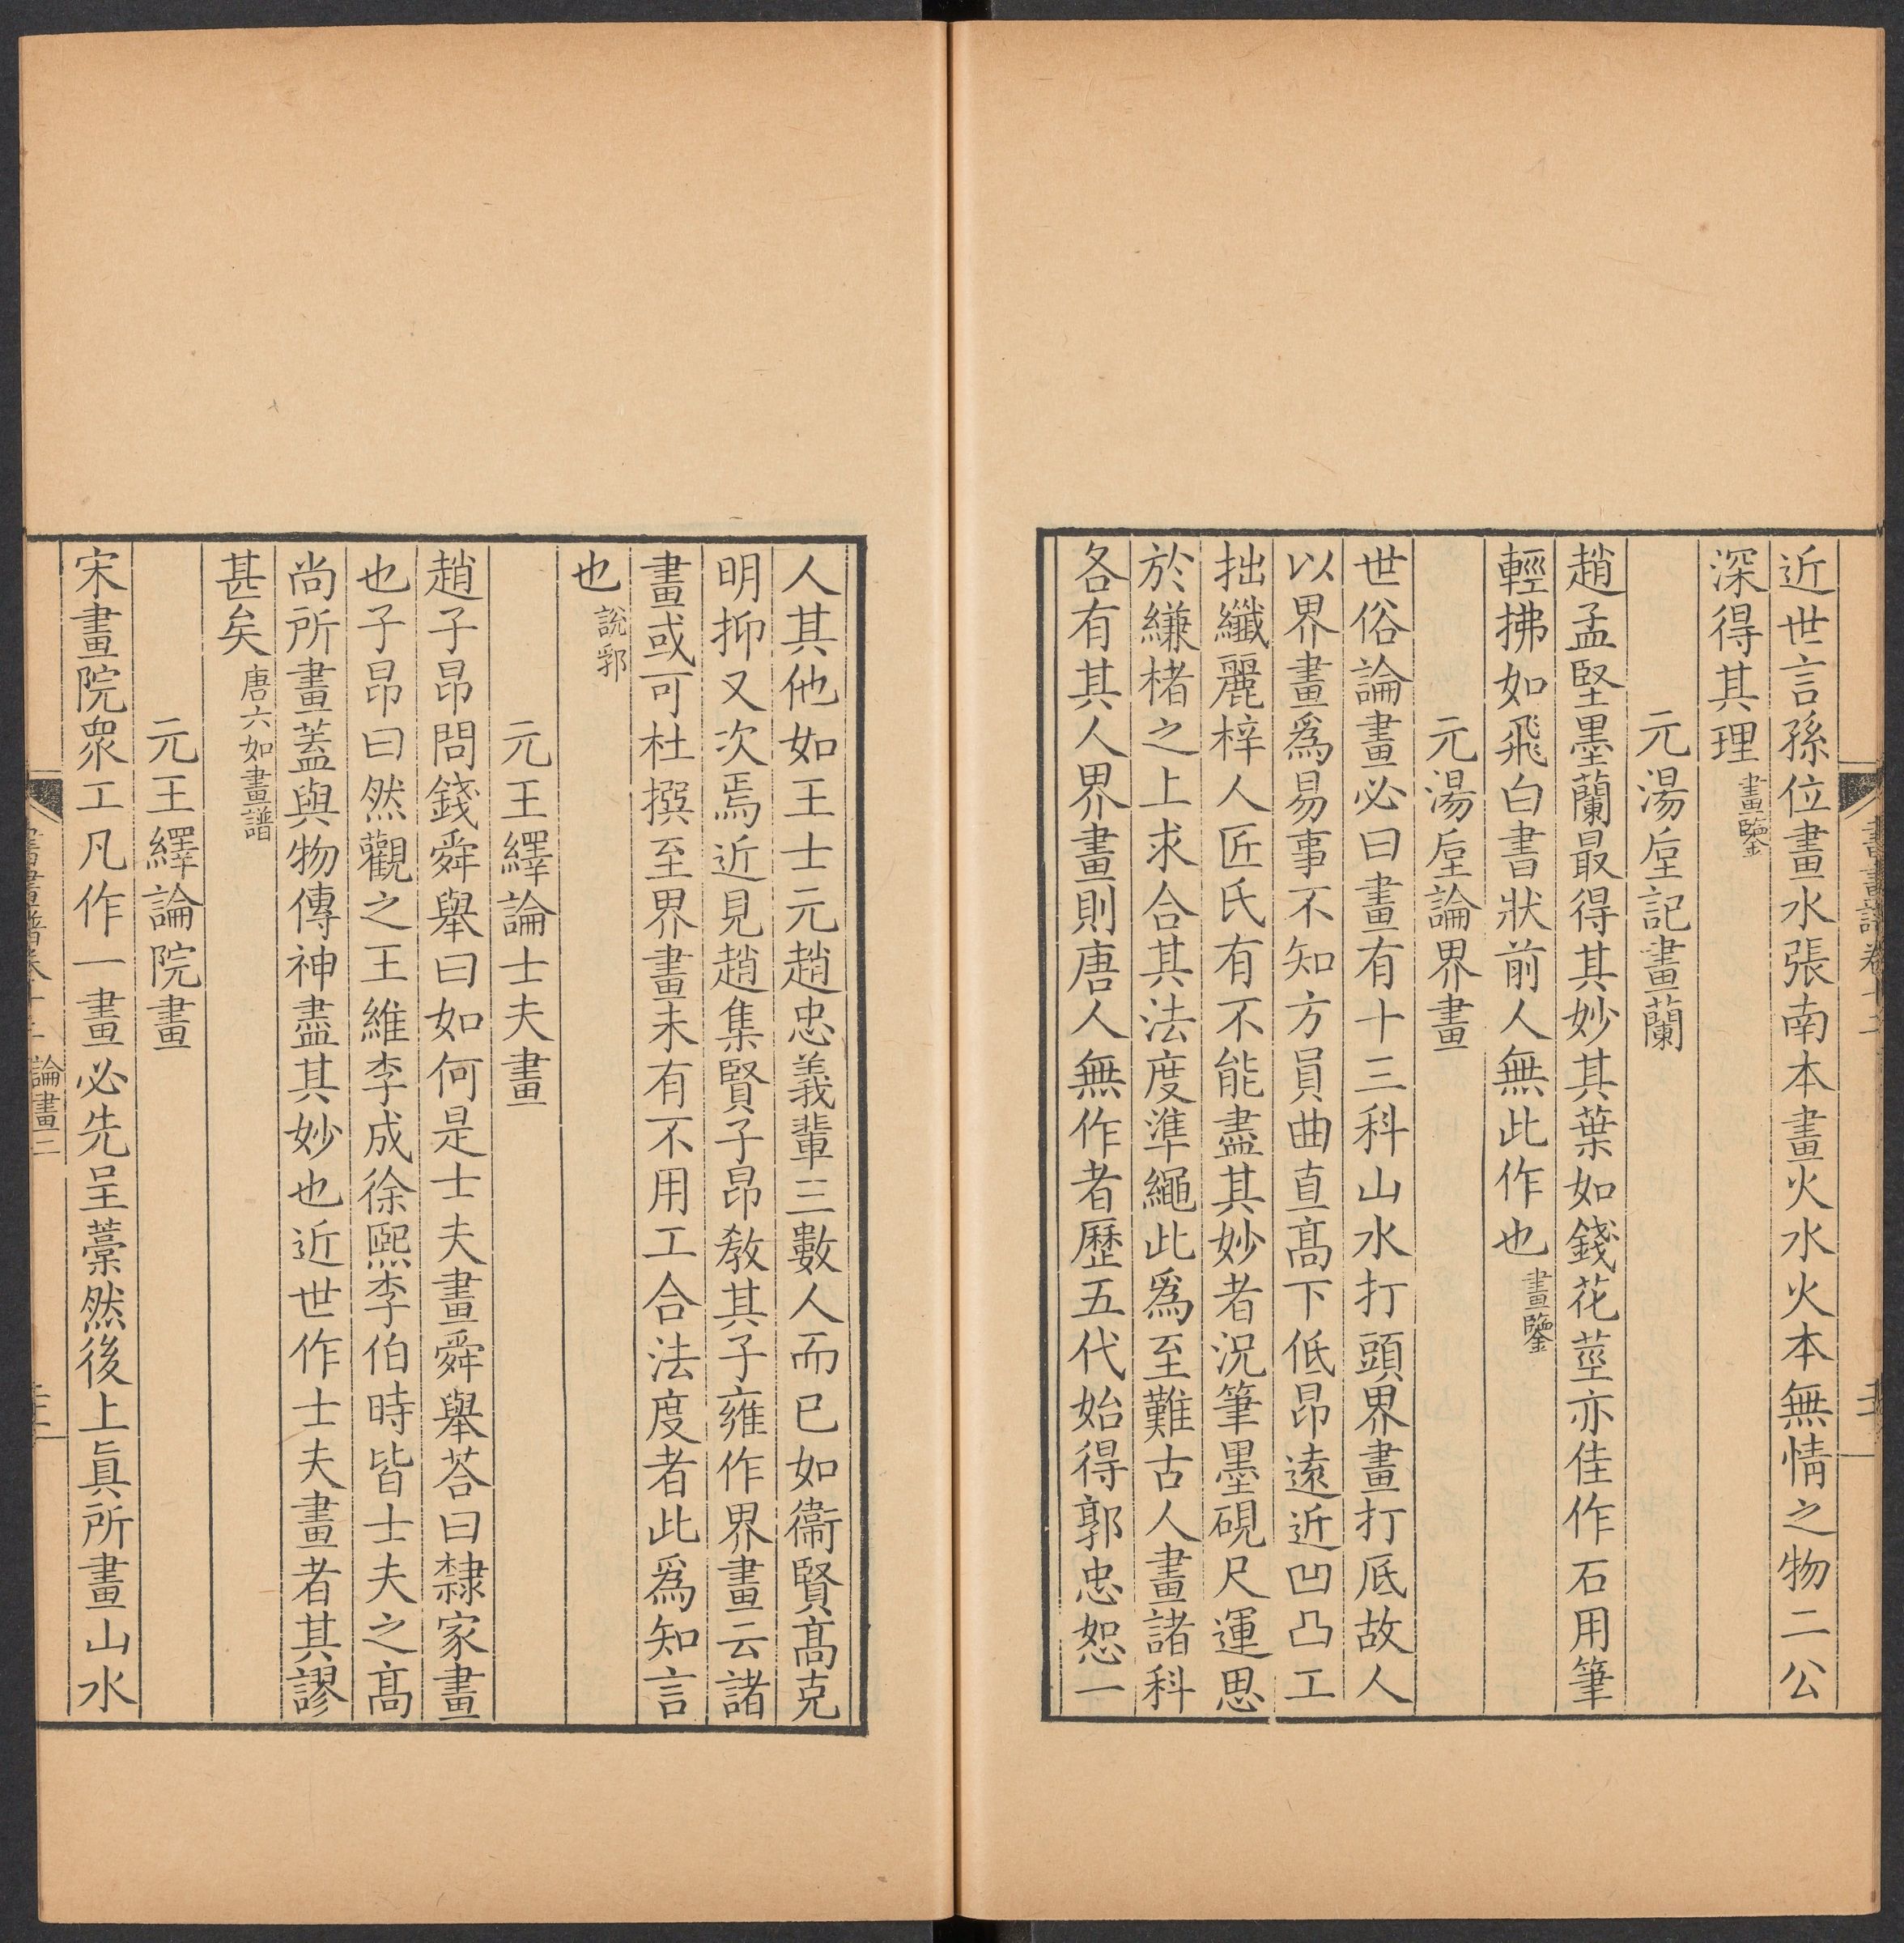 近世言孫位畫水張南本畫火水火本無情之物二公
深得其理畫鑒
元湯垕記畫蘭
趙孟堅墨蘭最得其妙其葉如錢花莖亦佳作石用筆
輕拂如飛白書狀前人無此作也畫鑒
元湯垕論界畫
世俗論畫必曰畫有十三科山水打頭界畫打底故人
以界畫爲易事不知方員曲直髙下低昂遠近凹凸工
拙纖麗梓人匠氏有不能盡其妙者況筆墨硯尺運思
於縑楮之上求合其法度準繩此爲至難古人畫諸科
各有其人界畫則唐人無作者歷五代始得郭忠恕一
人其他如王士元趙忠義輩三數人而已如衞賢髙克
明抑又次焉近見趙集賢子昂敎其子雍作界畫云諸
畫或可杜撰至界畫未有不用工合法度者此爲知言
也說郛
元王繹論士夫畫
趙子昂問錢舜舉曰如何是士夫畫舜舉荅曰隸家畫
也子昂曰然觀之王維李成徐熙李伯時皆士夫之髙
尚所畫蓋與物傳神盡其妙也近世作士夫畫者其謬
甚矣唐六如畫譜
元王繹論院畫
宋畫院衆工凡作一畫必先呈藁然後上眞所畫山水
論畫二